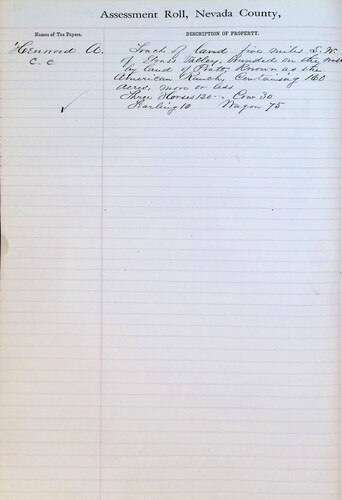 Assessment Roll, Nevada County,
Names of Tax Payers.
DESCRIPTION OF PROPERTY.
Henwood A. Track of land five miles S.W
C. C of Grass Valley, bounded on the west
by land of Pratt, Known as the
American Ranch, Containing 160
acres, more or less
Three Horses 120 Cow 30
Harling 10 Wagon 75